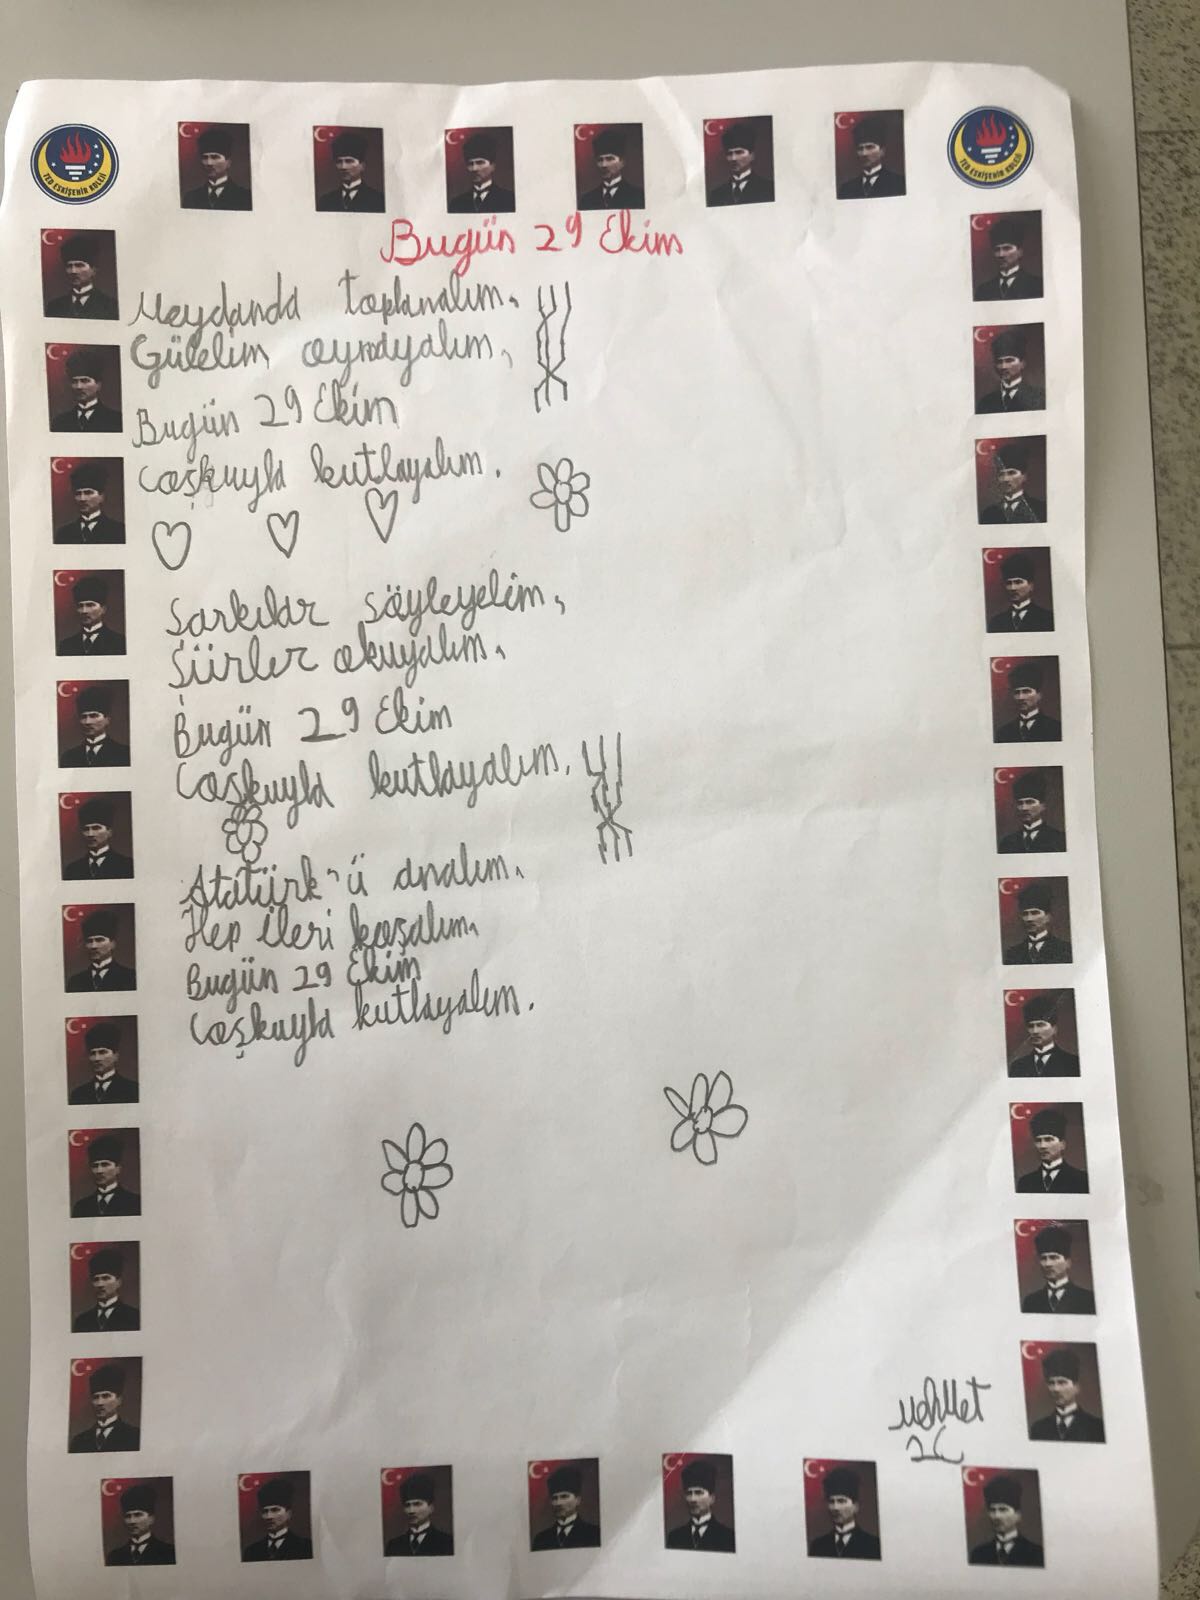 TED ESKİŞEHİR KOLEJİ
TED ESKİŞEHİR KOLEJİ
Bugün 29 Ekim
Meydanda toplanalım,
Gülelim oynayalım,
Bugün 29 Ekim
Coşkuyla kutlayalım.
Şarkılar söyleyelim,
Şiirler okuyalım,
Bugün 29 Ekim
Coşkuyla kutlayalım.
Atatürk'ü analım,
Hep ileri koşalım,
Bugün 29 Ekim
Coşkuyla kutlayalım.
Mehmet
2C